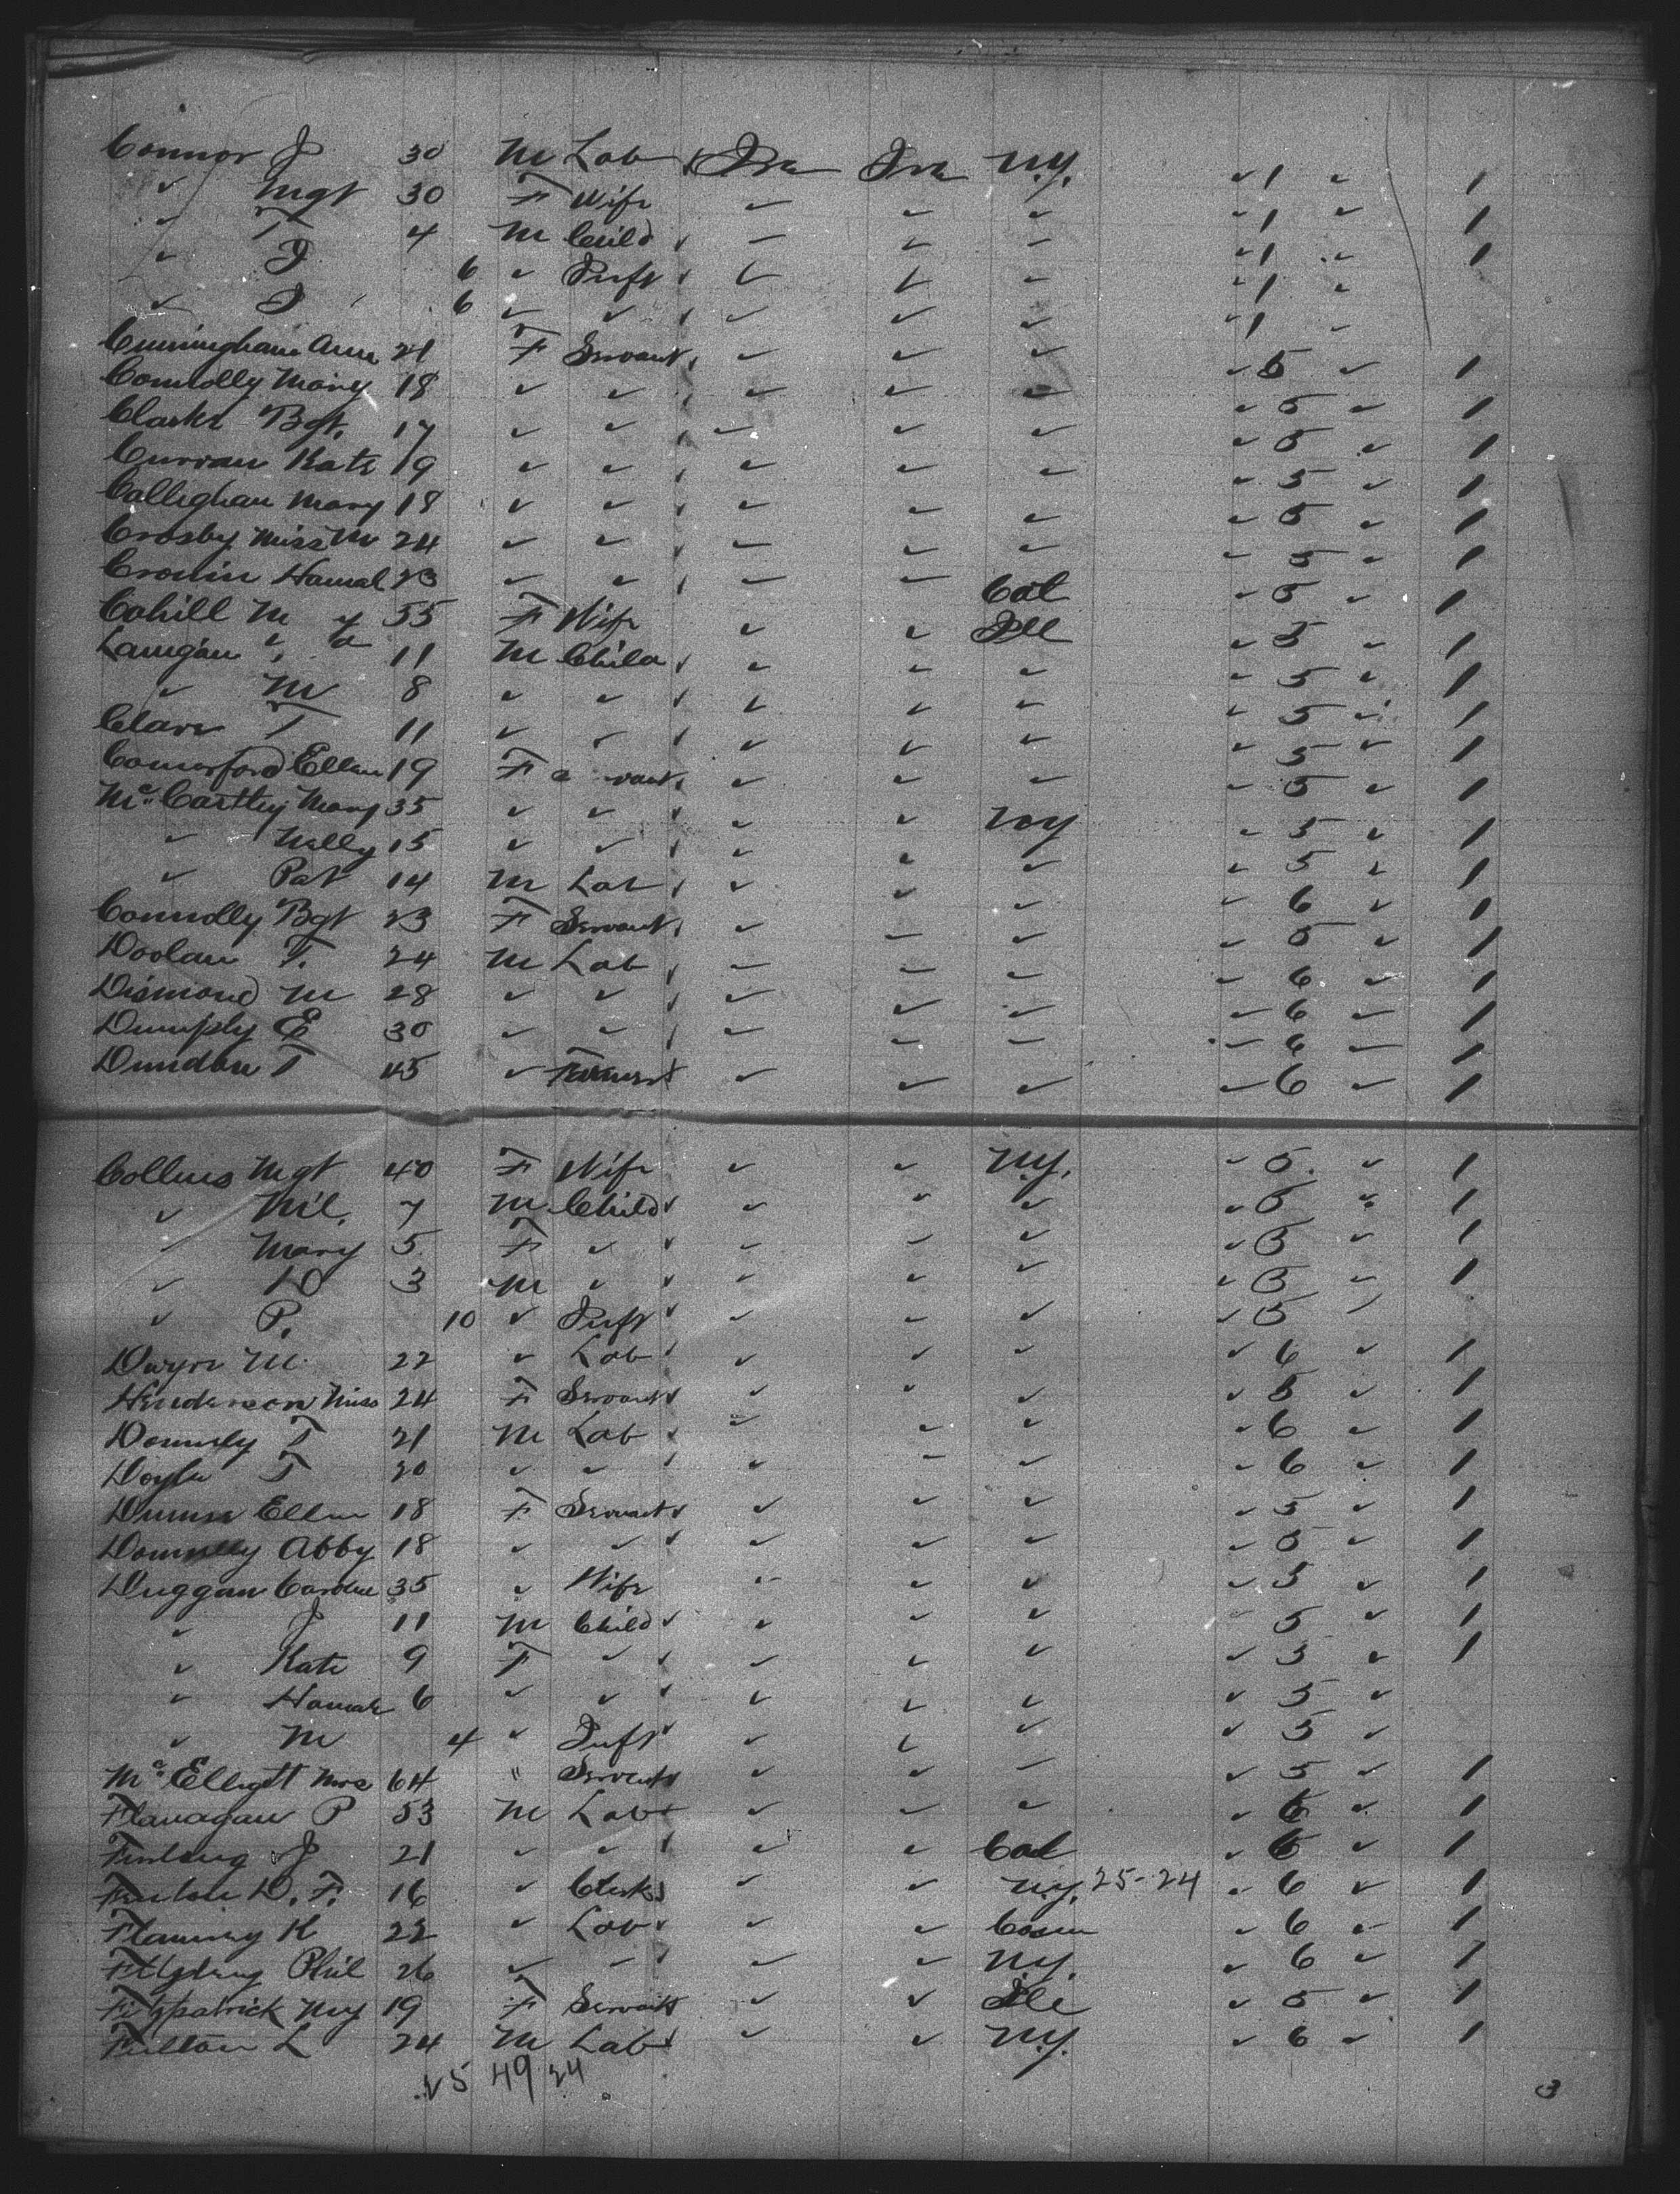 Connor J 30 M Lab ✓ Ire Ire N.Y. ✓ 1 ✓ 1
✓ Mgt 30 F Wife ✓ ✓ ✓ ✓ 1 ✓ 1
✓ T 4 M Child ✓ ✓ ✓ ✓ ✓ 1 ✓ 1
✓ J 6 ✓ Inft ✓ ✓ ✓ ✓ ✓ 1 ✓
✓ J 6 ✓ ✓ ✓ ✓ ✓ ✓ ✓ 1 ✓
Cunningham Ann 21 F Servant ✓ ✓ ✓ ✓ 5 ✓ 1
Connolly Mary 18 ✓ ✓ ✓ ✓ ✓ ✓ 5 ✓ 1
Clarke Bgt. 17 ✓ ✓ ✓ ✓ ✓ ✓ 5 ✓ 1
Curran Kate 19 ✓ ✓ ✓ ✓ ✓ ✓ 5 ✓ 1
Callighan Mary 18 ✓ ✓ ✓ ✓ ✓ ✓ 5 ✓ 1
Crosby Miss M 24 ✓ ✓ ✓ ✓ ✓ ✓ 5 ✓ 1
Cronin Hannah 23 ✓ ✓ ✓ ✓ Cal ✓ 5 ✓ 1
Cahill M 55 F Wife ✓ ✓ Ill ✓ 5 ✓ 1
Lanigan 11 M Child ✓ ✓ ✓ ✓ ✓ 5 ✓ 1
✓ M 8 ✓ ✓ ✓ ✓ ✓ ✓ ✓ 5 ✓ 1
Clare T 11 ✓ ✓ ✓ ✓ ✓ ✓ ✓ 5 ✓ 1
Comerford Ellen 19 F ✓ ✓ ✓ ✓ 5 ✓ 1
Mc Carthy Mary 35 ✓ ✓ ✓ ✓ NY ✓ 5 ✓ 1
✓ Nelly 15 ✓ ✓ ✓ ✓ ✓ ✓ ✓ 5 ✓ 1
✓ Pat 14 M Lab ✓ ✓ ✓ ✓ ✓ 6 ✓ 1
Connolly Bgt 23 F Servant ✓ ✓ ✓ ✓ 5 ✓ 1
Doolan T. 24 M Lab ✓ ✓ ✓ ✓ ✓ 6 ✓ 1
Dismond M 28 ✓ ✓ ✓ ✓ ✓ ✓ ✓ 6 ✓ 1
Dumphy E 30 ✓ ✓ ✓ ✓ ✓ ✓ ✓ 6 ✓ 1
Dundon T 45 ✓ Farmer ✓ ✓ ✓ ✓ 6 ✓ 1
Collins Mgt 40 F Wife ✓ ✓ N.Y. ✓ 5 ✓ 1
✓ Mil. 7 M Child ✓ ✓ ✓ ✓ ✓ 5 ✓ 1
✓ Mary 5 F ✓ ✓ ✓ ✓ ✓ ✓ 5 ✓ 1
✓ D 3 M ✓ ✓ ✓ ✓ ✓ ✓ 5 ✓ 1
✓ P. 10 ✓ Inft ✓ ✓ ✓ ✓ ✓ 5 ✓
Dwyre M. 22 ✓ Lab ✓ ✓ ✓ ✓ ✓ 6 ✓ 1
Henderson Miss 24 F Servant ✓ ✓ ✓ ✓ ✓ 5 ✓ 1
Donnely T 21 M Lab ✓ ✓ ✓ ✓ ✓ 6 ✓ 1
Doyle T 20 ✓ ✓ ✓ ✓ ✓ ✓ ✓ 6 ✓ 1
Dunne Ellen 18 F Servant ✓ ✓ ✓ ✓ ✓ 5 ✓ 1
Donnelly Abby 18 ✓ ✓ ✓ ✓ ✓ ✓ ✓ 5 ✓ 1
Duggan Caroline 35 ✓ Wife ✓ ✓ ✓ ✓ 5 ✓ 1
✓ J 11 M Child ✓ ✓ ✓ ✓ 5 ✓ 1
✓ Kate 9 F ✓ ✓ ✓ ✓ ✓ ✓ 5 ✓ 1
✓ Hannah 6 ✓ ✓ ✓ ✓ ✓ ✓ ✓ 5 ✓
✓ M 4 ✓ Inft ✓ ✓ ✓ ✓ ✓ 5 ✓
Mc Elligott Mrs 64 " Servant ✓ ✓ ✓ ✓ 5 ✓ 1
Flanagan P 53 M Lab ✓ ✓ ✓ ✓ ✓ 6 ✓ 1
Finlang J 21 ✓ ✓ ✓ ✓ ✓ Cal ✓ 6 ✓ 1
Fenlon D. F. 16 ✓ Clerk ✓ ✓ N.Y. 25-24 ✓ 6 ✓ 1
Flaming K 22 ✓ Lab ✓ ✓ ✓ Conn ✓ 6 ✓ 1
Phil 26 ✓ ✓ ✓ ✓ N.Y. ✓ 6 ✓ 1
Fitzpatrick My 19 F Servant ✓ ✓ Ill ✓ 5 ✓ 1
Fulton L 24 M Lab ✓ ✓ ✓ N.Y. ✓ 6 ✓ 1
25 49 24
3